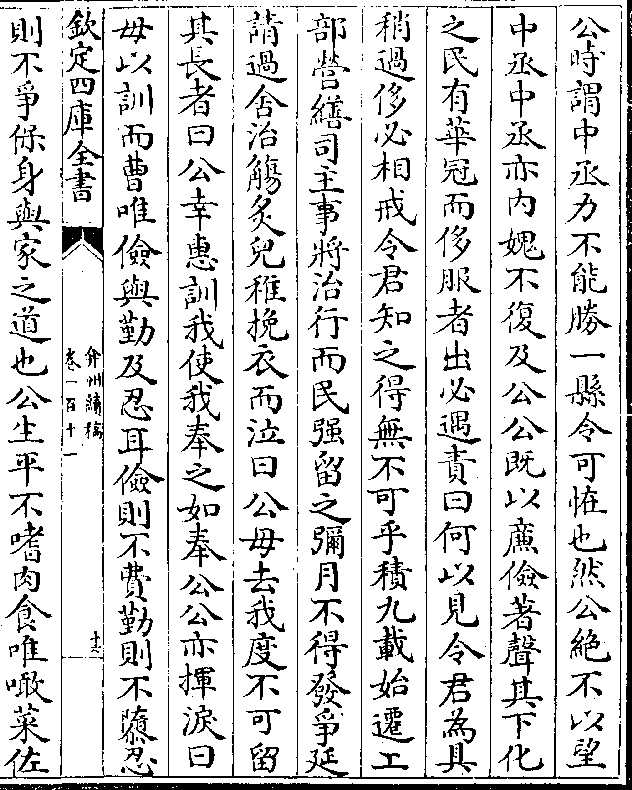 公時謂中丞力不能勝一縣令可恠也然公絶不以望
中丞中丞亦内媿不復及公公既以亷儉著聲其下化
之民有華冠而侈服者出必遇責曰何以見令君為具
稍過侈必相戒令君知之得無不可乎積九載始遷工
部營繕司主事將治行而民强留之彌月不得發爭延
請過舍治觴炙兒稚挽衣而泣曰公毋去我度不可留
其長者曰公幸惠訓我使我奉之如奉公公亦揮淚曰
毋以訓而曹唯儉與勤及忍耳儉則不費勤則不隳忍
欽定四庫全書 弇州續稿 卷一百十一 十三
則不爭保身與家之道也公生平不嗜肉食唯噉菜佐